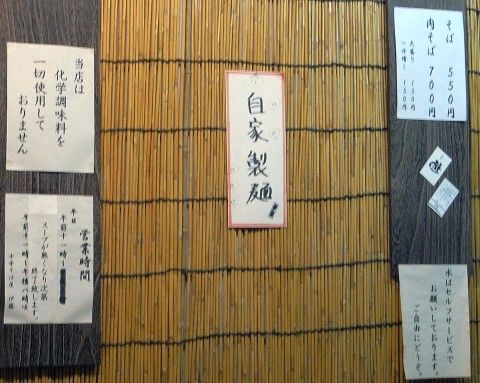 そば 550円
肉そば 700円
大盛り 150円
150円
自家製麺
当店は
化学調味料を
一切使用して
おりません
営業時間
平日
午前十一時〜
スープが無くなり次第
終了致します。
水はセルフサービスで
お願いしております。
ご自由にどうぞ。